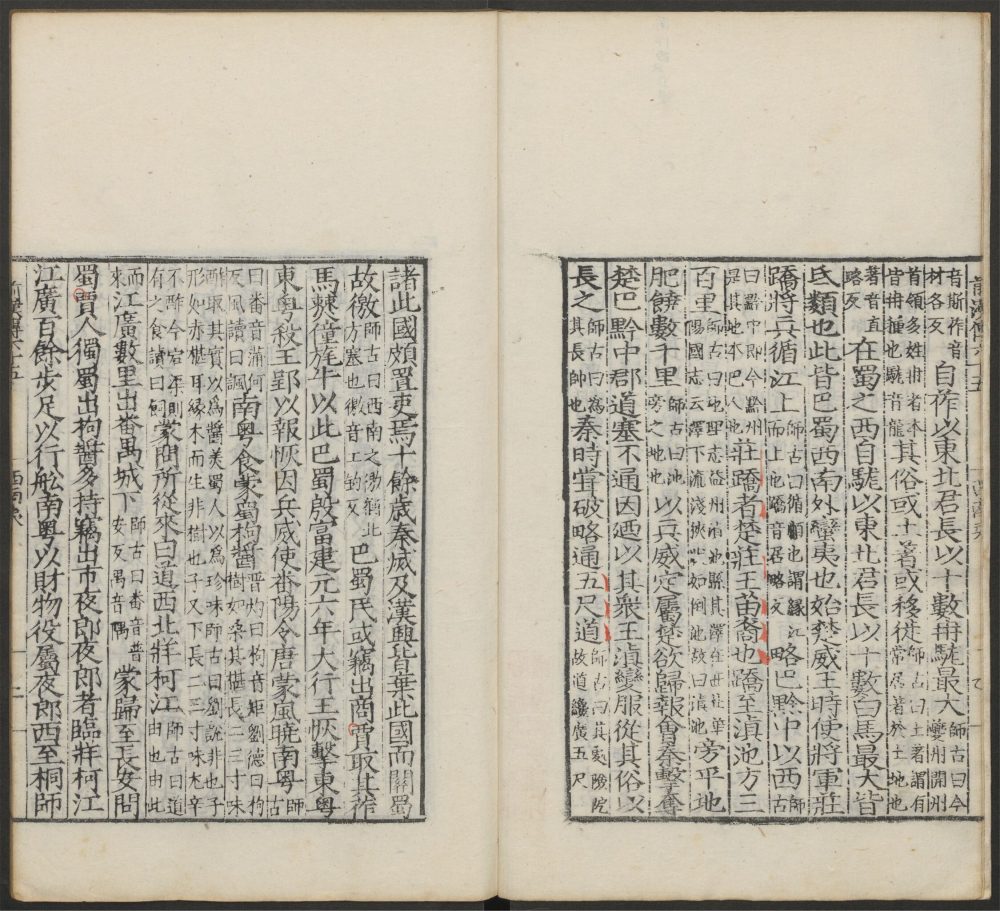 音斯作音材各反自作以東北君長以十數冉駹最大師古曰今夔州開州
首領多姓冉者本皆冉種也駹音龍其俗或土著或移徙師古曰土著謂有常居著於土地也
著音直略反在蜀之西自駹以東北君長以十數白馬最大皆
氐類也此皆巴蜀西南外蠻夷也始楚威王時使將軍莊
蹻將兵循江上師古曰循順也謂緣江而上也蹻音居略反略巴黔中以西師古
曰黔中即今黔州是其地本巴人也莊蹻者楚莊王苗裔也蹻至滇池方三
百里師古曰地理志益州滇池縣其澤在西北華陽國志云澤下流淺狹狀如倒池故曰滇池旁平地
肥饒數千里師古曰池旁之地也以兵威定屬楚欲歸報會秦擊奪
楚巴黔中郡道塞不通因廼以其衆王滇變服從其俗以
長之師古曰為其長帥也秦時甞破略通五尺道師古曰其處險阸故道纔廣五尺
諸此國頗置吏焉十餘歲秦滅及漢興皆棄此國而關蜀
故徼師古曰西南之徼猶北方塞也徼音工釣反巴蜀民或竊出商賈取其筰
馬僰僮旄牛以此巴蜀殷富建元六年大行王恢擊東粤
東粤殺王郢以報恢因兵威使番陽令唐蒙風曉南粤師古
曰番音蒲何反風讀曰諷南粤食蒙蜀枸醬晉灼曰枸音矩劉德曰枸樹如桑其椹長二三寸味
酢取其實以為醬美蜀人以為珍味師古曰劉說非也子形如赤椹耳緣木而生非樹也子又下長二三寸味尤辛
不酢今宕渠則有之食讀曰飼蒙問所從來曰道西北牂柯江師古曰道由也由此
而來江廣數里出番禺城下師古曰番音普安反禺音隅蒙歸至長安問
蜀賈人獨蜀出枸醬多持竊出市夜郎夜郎者臨牂柯江
江廣百餘步足以行船南粤以財物役屬夜郎西至桐師